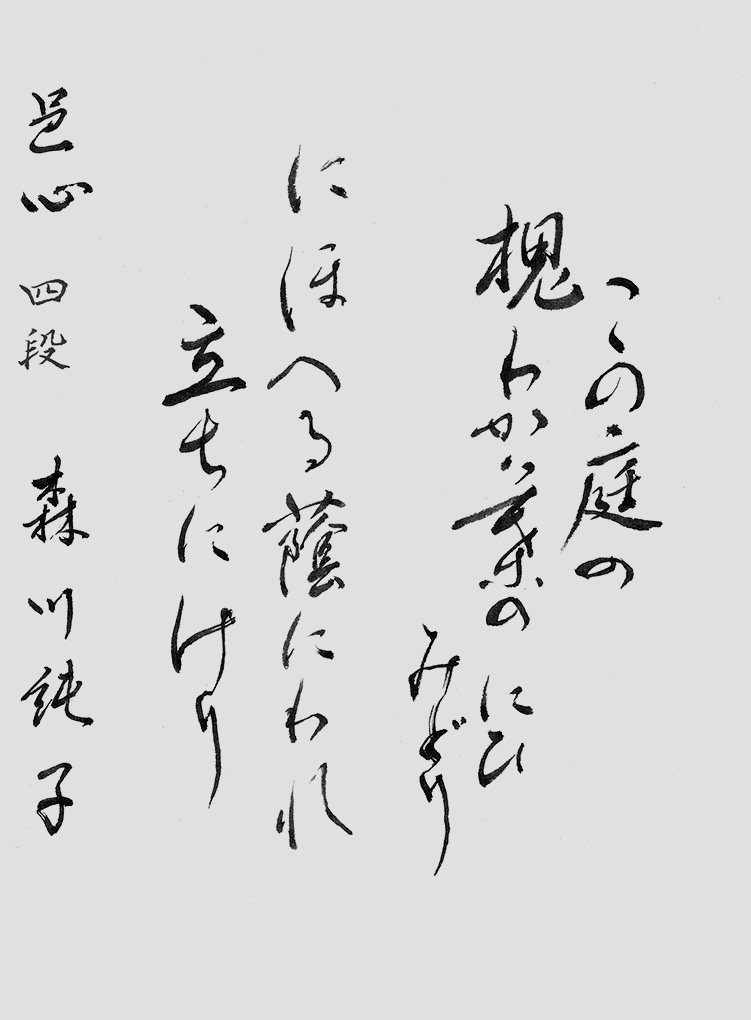 この庭の
槐わか葉の
にひ
みどり
にほへる蔭にわれ
立ちにけり
邑心 四段 森川純子